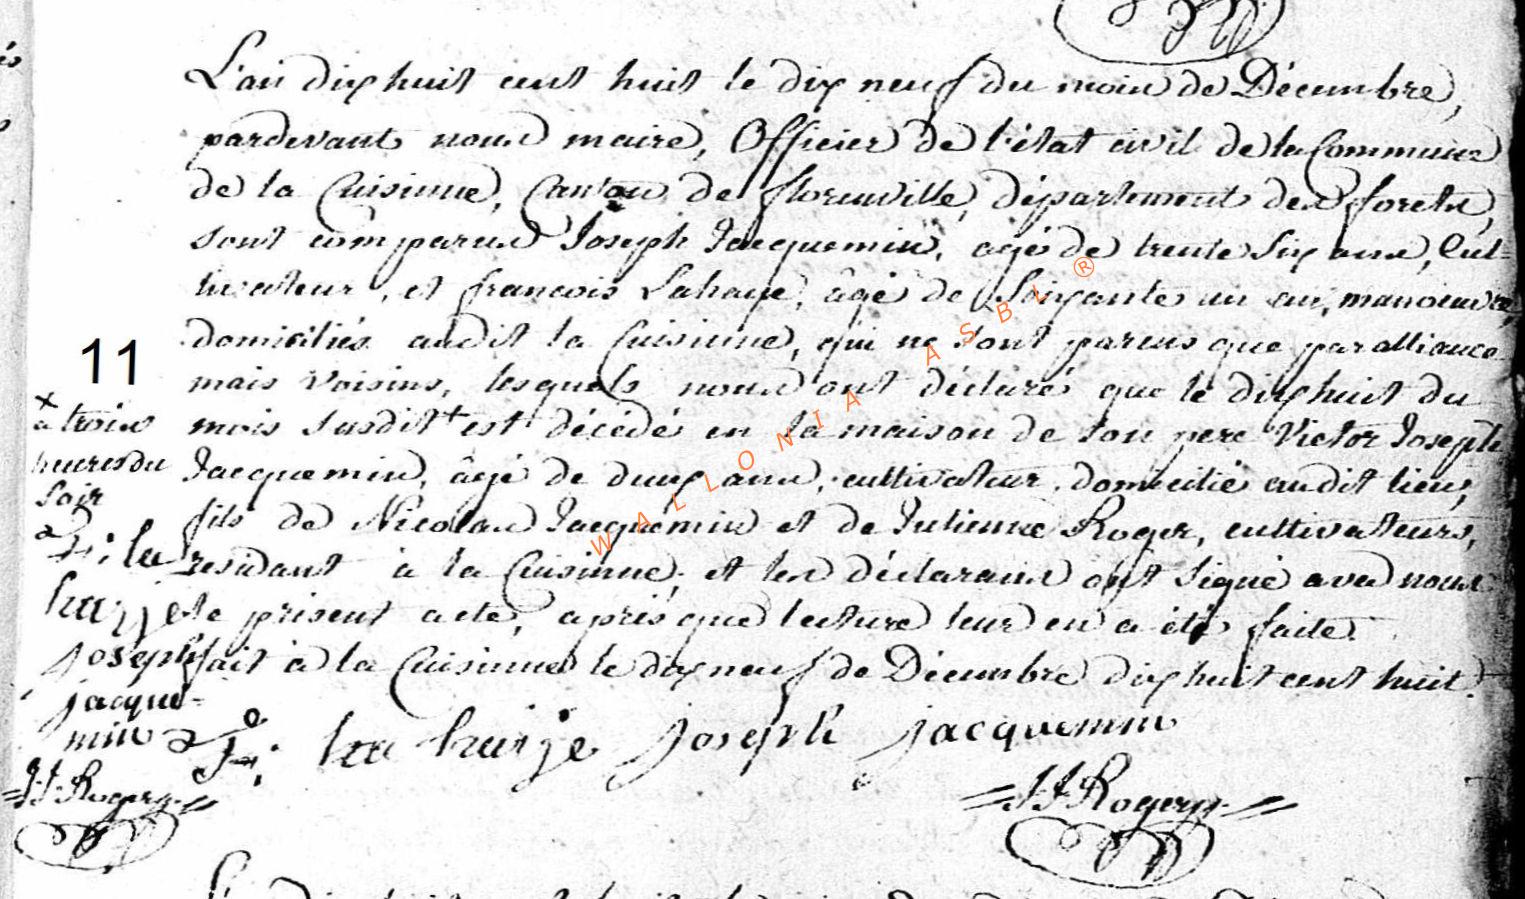 L'an dix huit cent huit le dix neuf du mois de Décembre,
pardevant nous maire, Officier de l'état civil de la Commune
de la Cuisinne, Canton de florenville, département des forets,
sont comparus Joseph Jacquemin, agé de trente six ans, Cul=
tivateur, et francois Lahaye, âgé de soixante un an, manoeuvre,
domiciliés audit la Cuisinne, qui ne sont parens que par alliance
11
mais voisins, lesquels nous ont déclaré que le dix huit du
mois susdit + est décédé en sa maison de son pere Victor Joseph
Jacquemin, âgé de deux ans, cultivateur, domicilié audit lieu,
fils de Nicolas Jacquemin et de Julienne Roger, cultivateurs,
residant à la Cuisinne, et les déclarans ont signé avec nous
le présent acte, après que lecture leur en a été faite.
fait à la Cuisinne le dix neuf de Décembre dix huit cent huit.
x
à trois
heures du
soir
f: la
haije
joseph
jacque=
min
JJ Rogery
f: la haije joseph jacquemin
JJ Rogery
WALLONIA ASBL ®